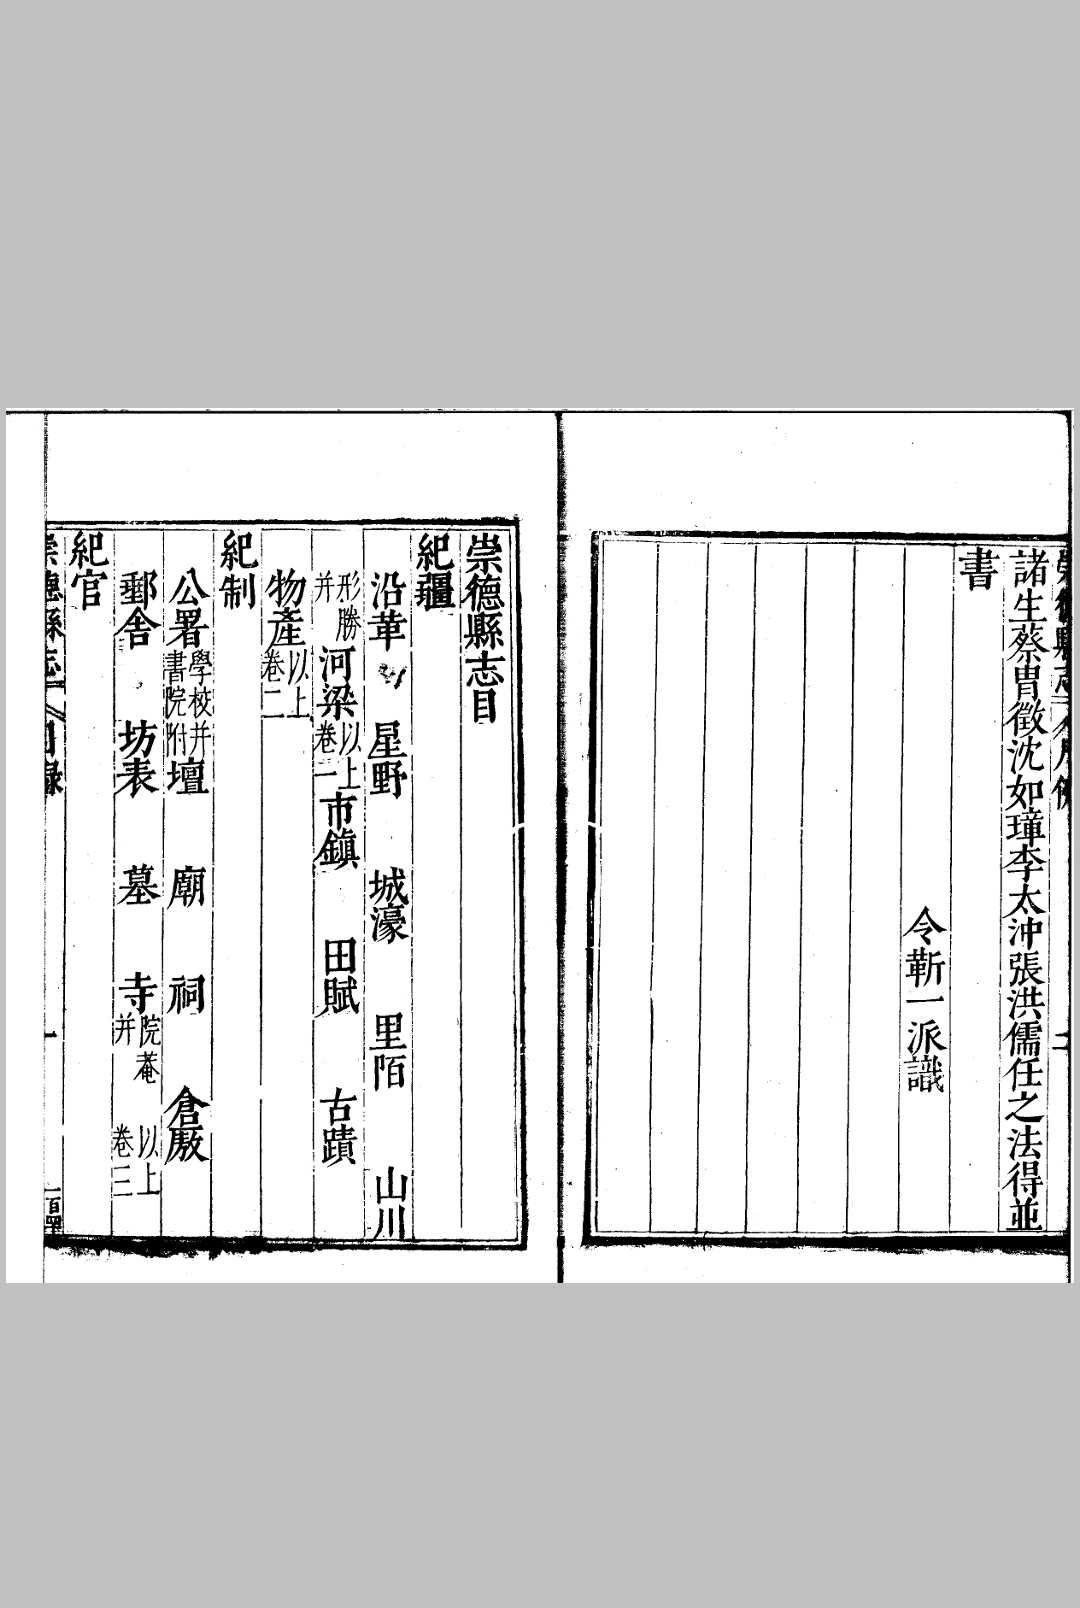 諸生蔡胄徵沈如璋李太沖張洪儒任之法得並
書
令靳一派識
崇德縣志目
紀疆
沿革 星野 城濠 里陌 山川
并形勝 河梁以上卷一 市鎮 田賦 古蹟
物產以上卷二
紀制
公署學校并書院附 壇 廟 祠 倉厫
郵舍 坊表 墓 寺院菴并 以上卷三
紀官
崇德縣志 目錄 一